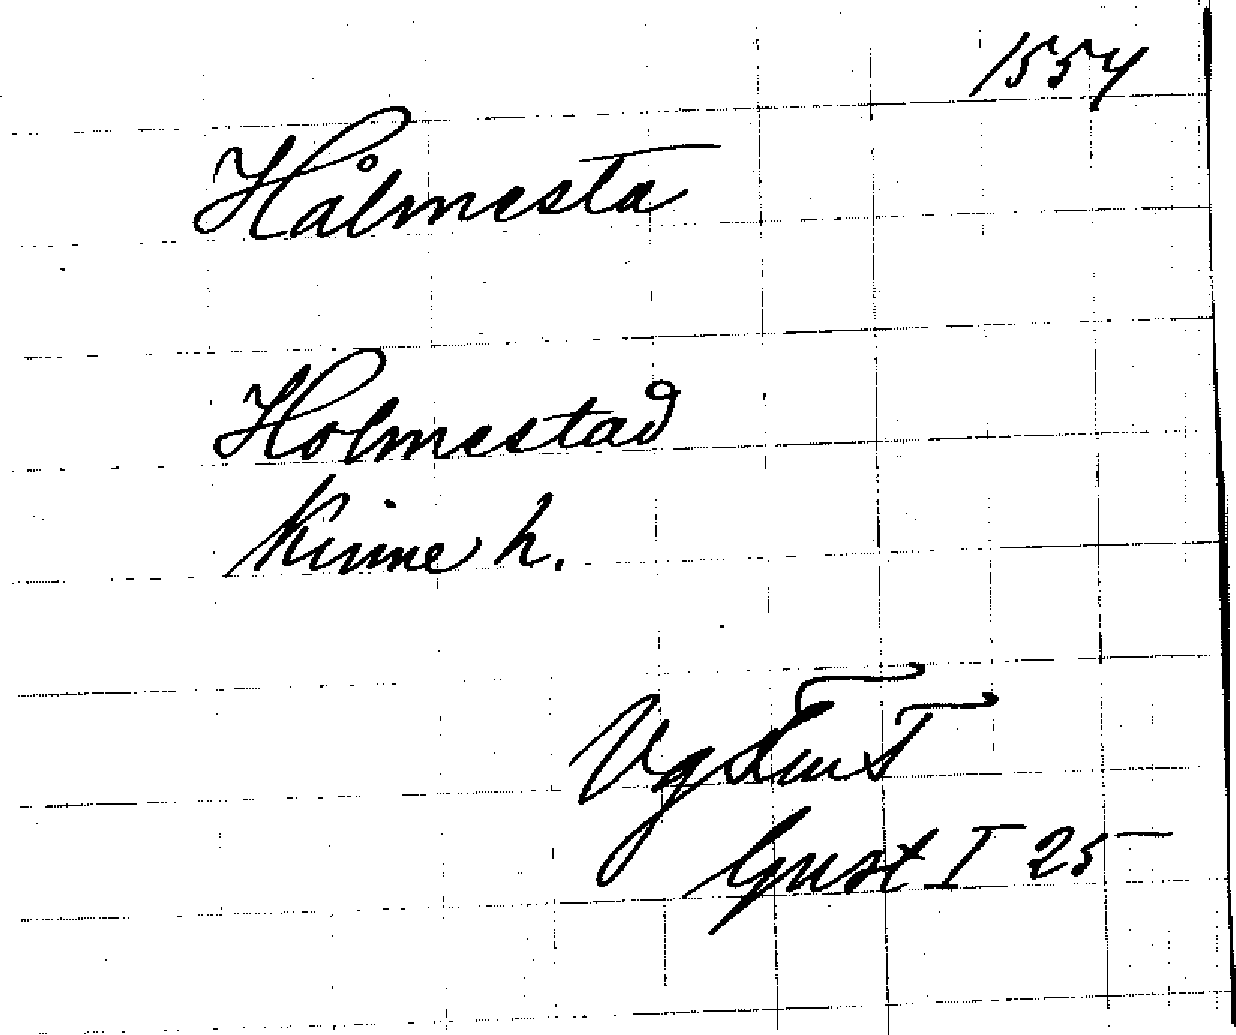 1554
Hålmesta
Holmestad
Kinne h.
Vg
Gust I 25